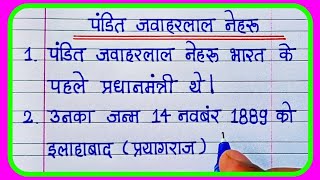 पंडित जवाहरलाल नेहरू
1. पंडित जवाहरलाल नेहरू भारत के
पहले प्रधानमंत्री थे।
2. उनका जन्म 14 नवबंर 1889 को
इलाहाबाद (प्रयागराज)